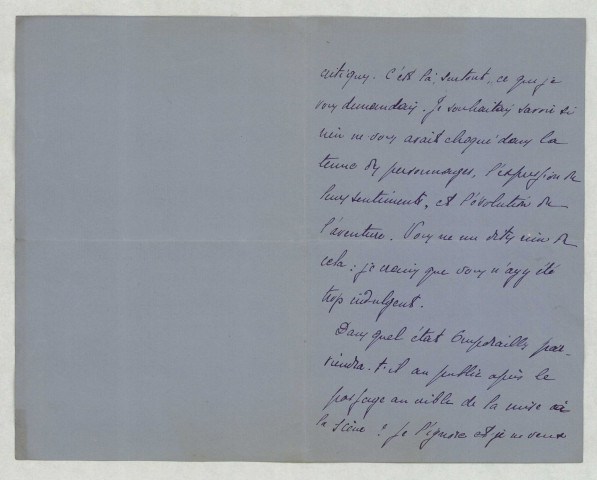 critiques. C'est là, surtout, ce que je
vous demandais. Je souhaitais savoir si
rien ne vous avait choqué dans la
tenue des personnages, l'expression de
leurs sentiments, et l'évolution de
l'aventure. Vous ne me dites rien de
cela : je crains que vous n'ayez été
trop indulgent.
Dans quel état par-
viendra-t-il au public après le
passage au crible de la mise à
la scène ? Je l'ignore et je ne veux